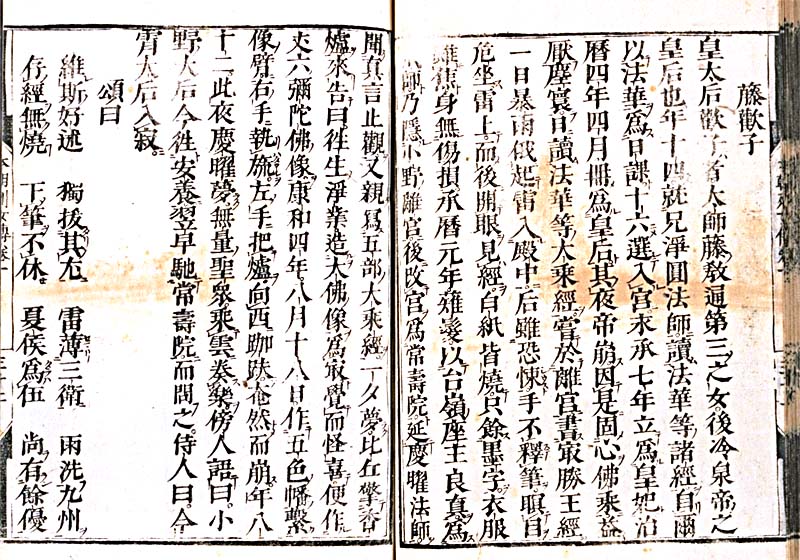 藤歡子
皇太后歡子者太師藤敎通第三之女後冷泉帝之
皇后也年十四就兄淨圓法師讀法華等諸經自爾
以法華爲日課十六選入宮永承七年立爲皇妃治
曆四年四月冊爲皇后其夜帝崩因是固心佛乘益
厭塵寰日讀法華等大乘經嘗於離宮書最勝王經
一日暴雨俄起雷入殿中后雖恐悚手不釋筆瞑目
危坐雷上而後開眼見經白紙皆燒只餘墨字衣服
雖焦身無傷損承曆元年薙髮以台嶺座主良真爲
師乃隱小野離宮後改宮爲常壽院延慶曜法師
聞真言止觀又親寫五部大乘經一夕夢比丘擎香
爐來告曰往生淨業造大佛像爲最覺而怪喜便作
丈六彌陀佛像康和四年八月十八日作五色幡繫
像臂右手執旒左手把爐向西跏趺奄然而崩年八
十二此夜慶曜夢無量聖衆乘雲奏樂傍人語曰小
野太后今往安養翌早馳常壽院而問之侍人曰今
宵太后入寂。
頌曰
維斯好逑 獨拔其尤 雷薄三衛 雨洗九州
存經無燒 下筆不休 夏侯爲伍 尚有餘優